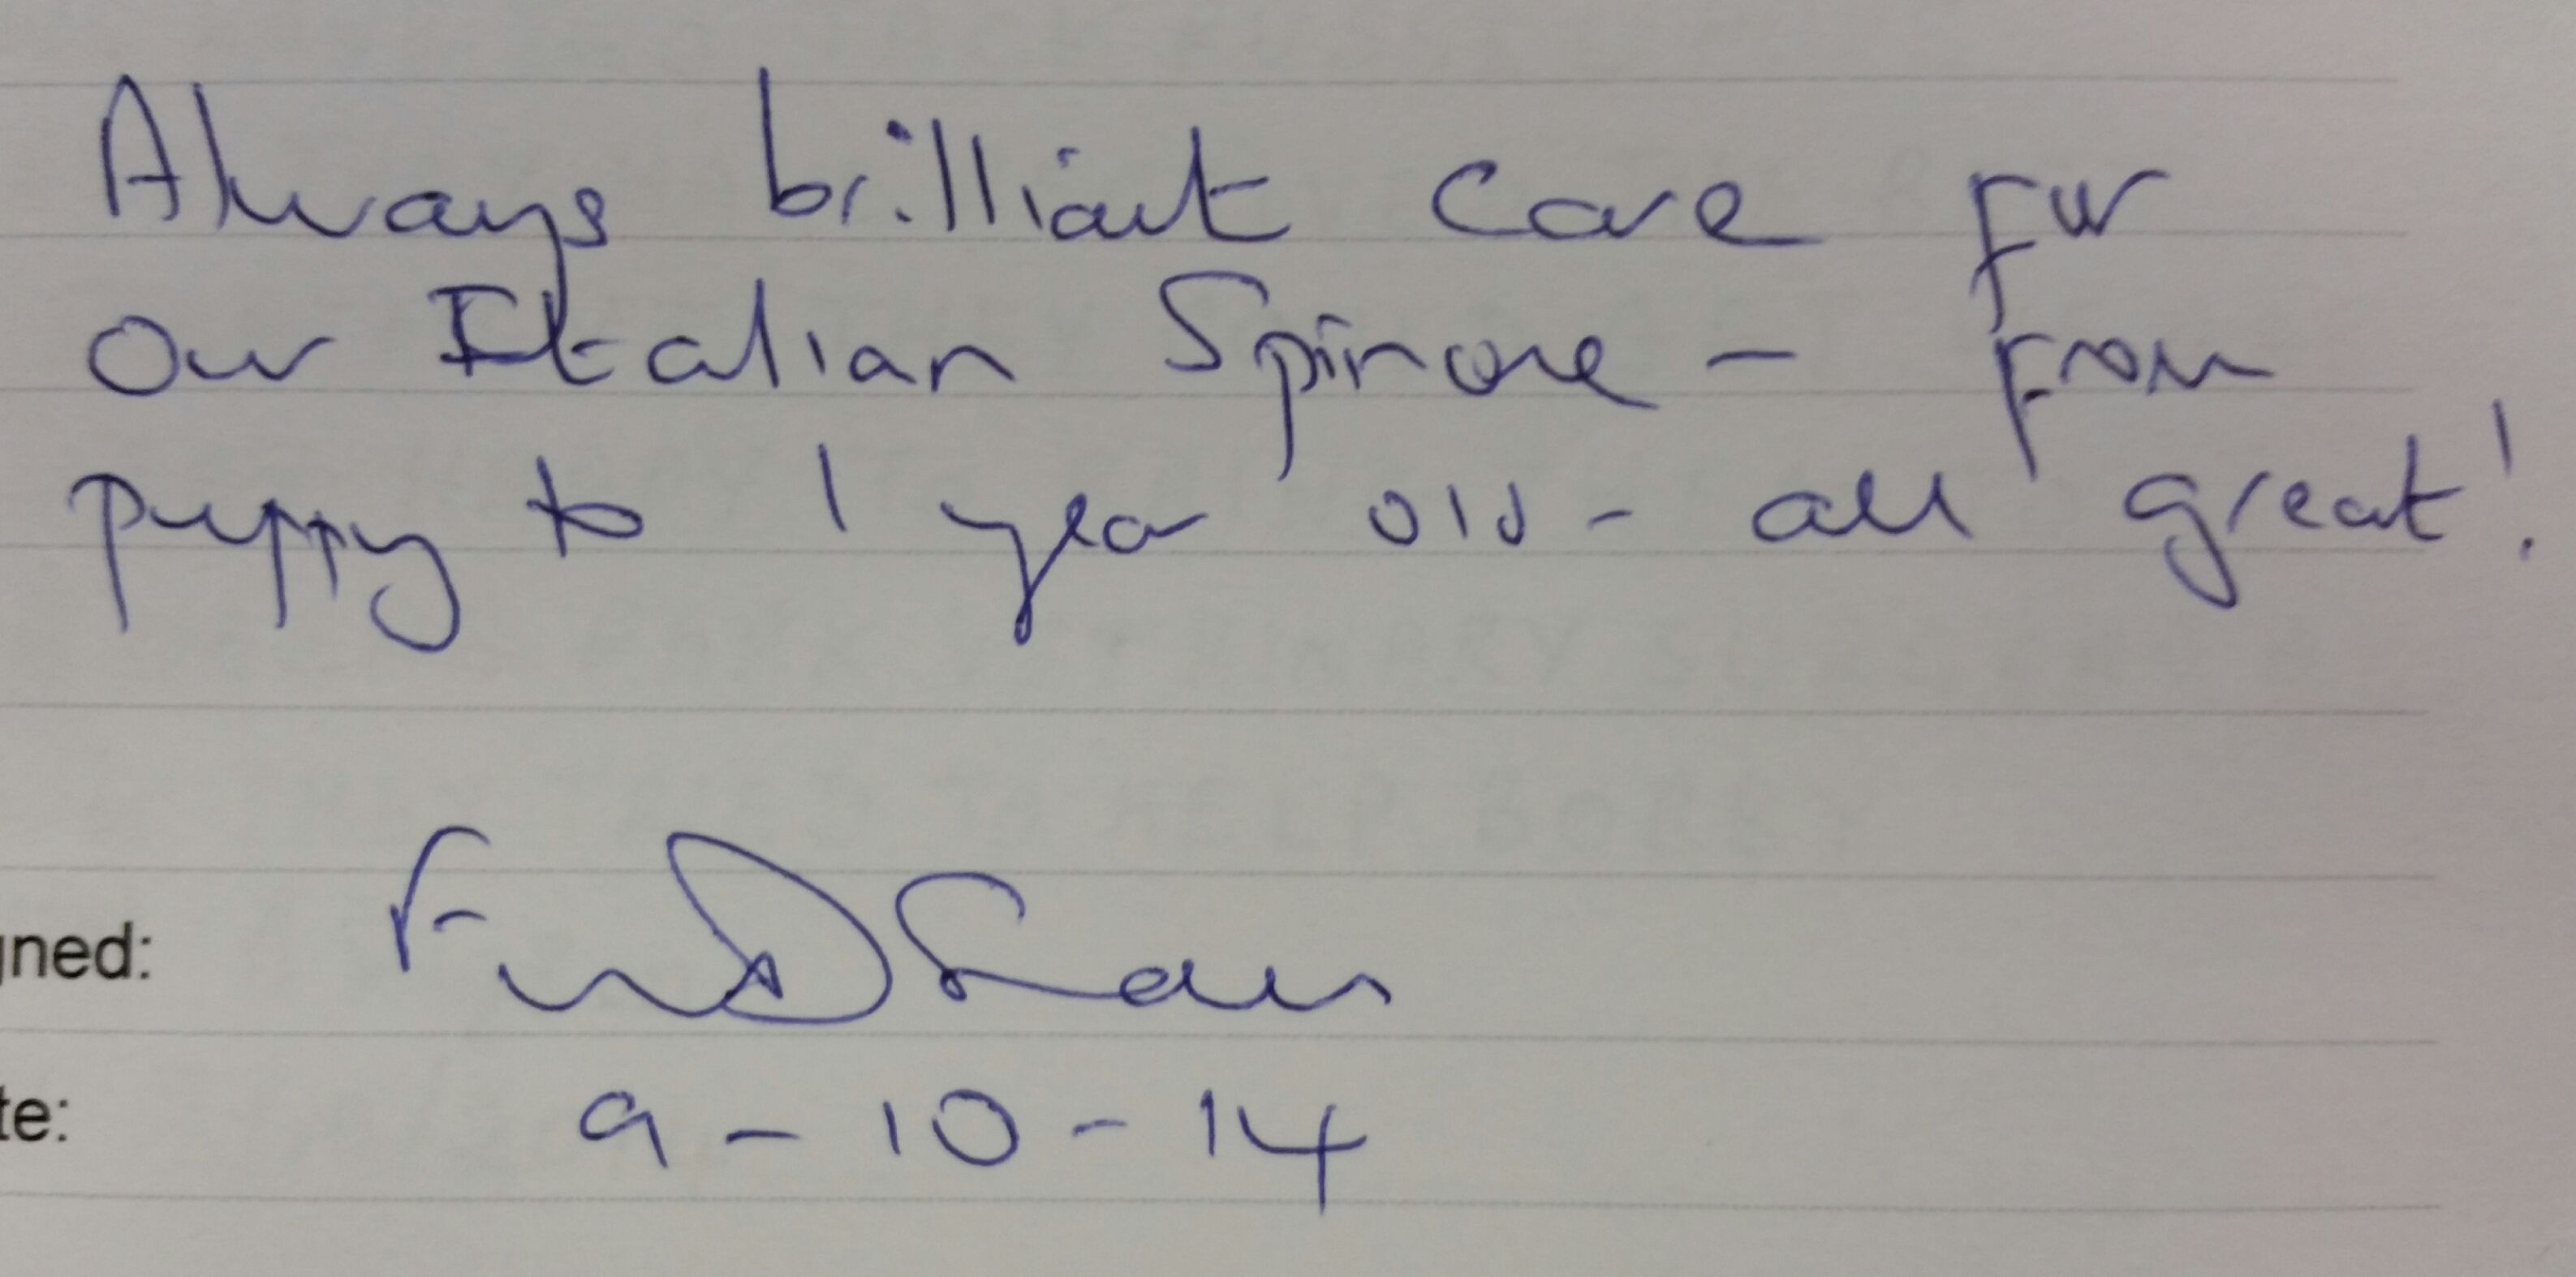 Always brilliant care for
our Italian Spinone - from
puppy to 1 year old - all great!
gned:
te: 9-10-14